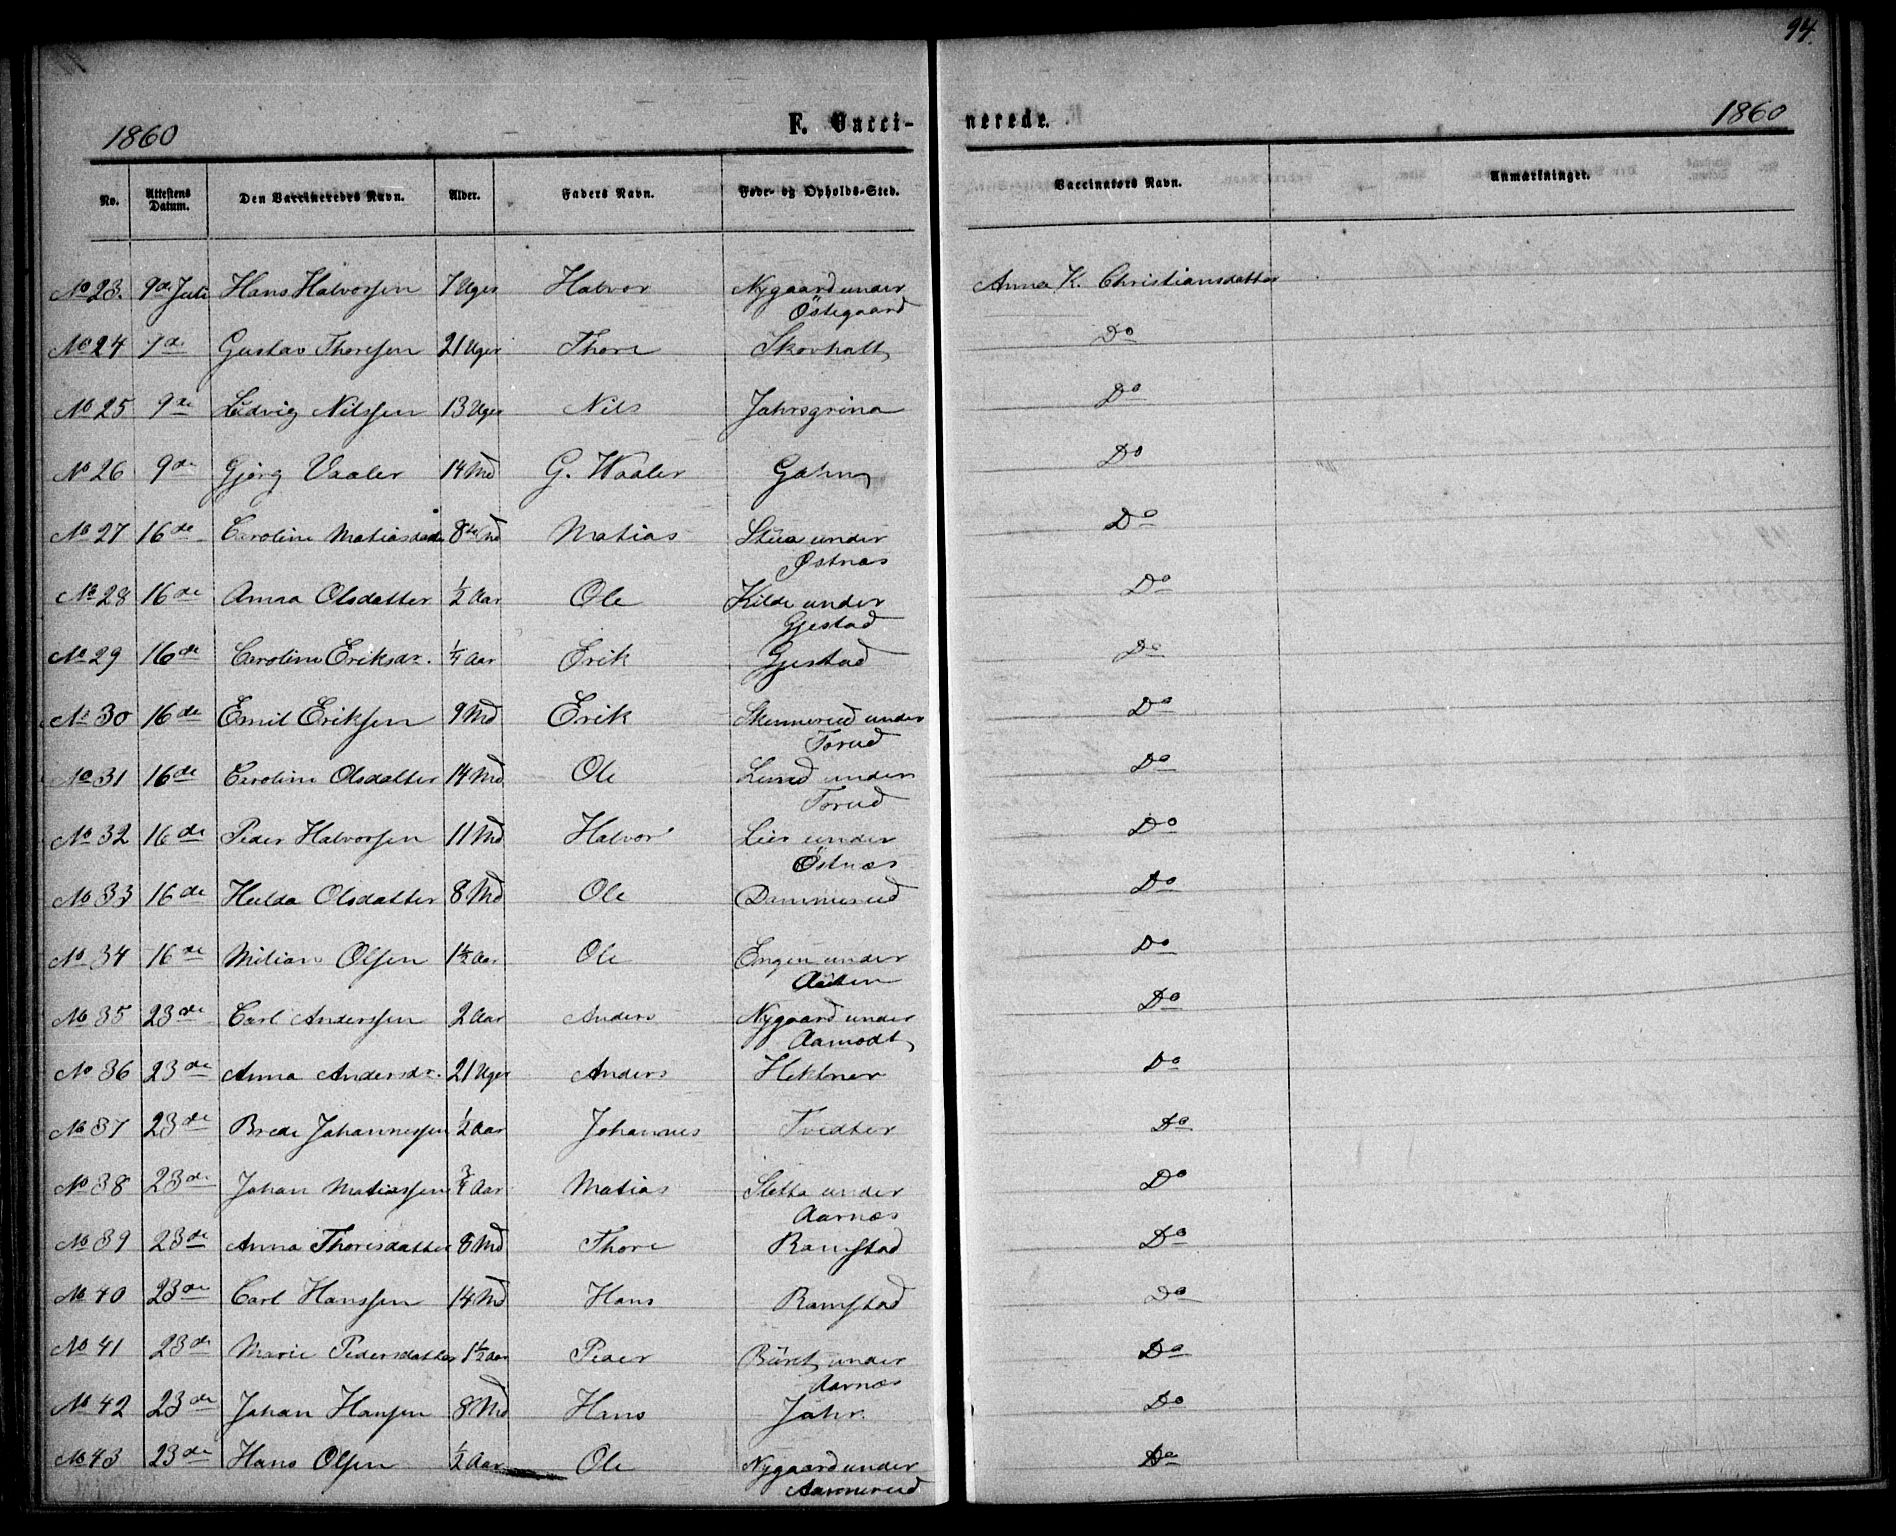 94.
1860 F. Vacci- nerede. 1860
No. Attestens Datum. Den Vaccineredes Navn. Alder. Faders Navn. Føde- og Opholds-Sted. Vaccinators Navn. Anmærkninger.
No 23. 9de Juli Hans Halvorsen 7 Uger Halvor Nygaard under Anna K. Christiansdatter
Östegaard
No 24 7de Gustav Thoresen 21 Uger Thore Skovhalt Do
No 25 9de Ludvig Nilssen 13 Uger Nils Jahrsgrina Do
No 26 9de Gjørg Vaaler 14 Md G. Waaler Do
No 27 16de Caroline Matiasdatter 8te Md Matias Stua under Do
Østnæs
No 28 16de Anna Olsdatter 1/2 Aar Ole Kilde under Do
Gjestad
No 29 16de Caroline Eriksdr. 1/4 Aar Erik Gjestad Do
No 30 16de Emil Eriksen 9 Md Erik Skennerud under Do
Torud
No 31 16de Caroline Olsdatter 14 Md Ole Lund under Do
Torud
No 32 16de Peder Halvorsen 11 Md Halvor Lier under Do
Östnæs
No 33 16de Hulda Olsdatter 8 Md Ole Dammerud Do
No 34 16de Milian Olsen 1 1/2 Aar Ole Engen under Do
No 35 23de Carl Anderssen 2 Aar Anders Nygaard under Do
Aamodt
No 36 23de Anna Andersdr. 21 Uger Anders Hektner Do
No 37 23de Brede Johannessen 1/2 Aar Johannes Tvedter Do
No 38 23de Johan Matiassen 3/4 Aar Matias Sletta under Do
Aarnæs
No 39 23de Anna Thoresdatter 8 Md Thore Ramstad Do
No 40 23de Carl Hanssen 14 Md Hans Ramstad Do
No 41 23de Marie Pedersdatter 1 1/2 Aar Peder Büret under Do
Aarnæs
No 42 23de Johan Hansen 8 Md Hans Jahr. Do
No 43 23de Hans Olsen 1/2 Aar Ole Nygaard under Do
Aamerud